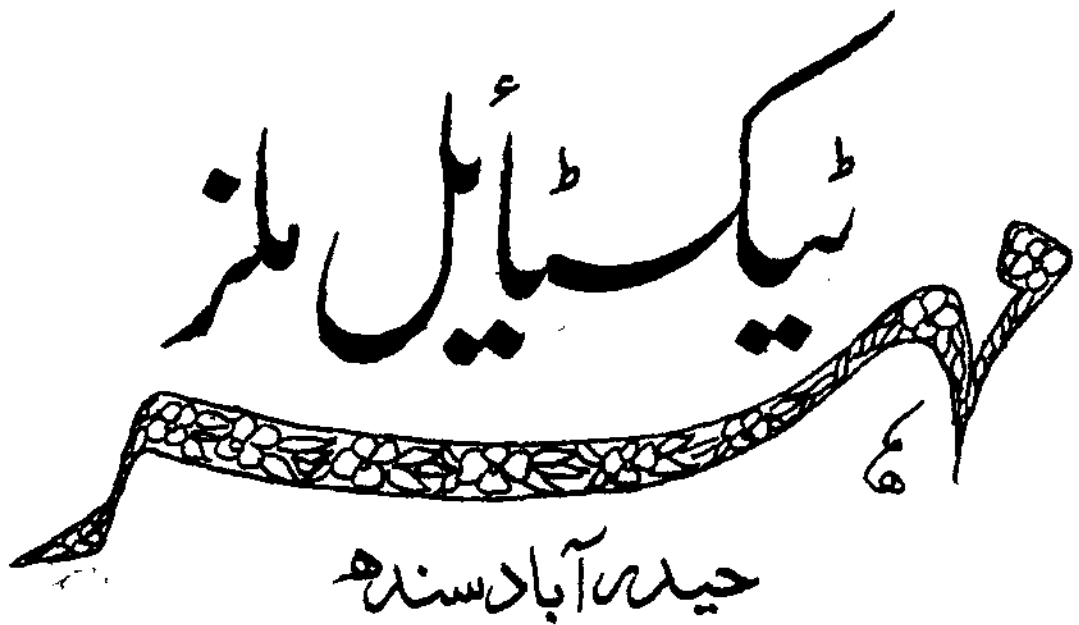 مہر
ٹیکسٹائیل ملز
حیدرآباد سندھ